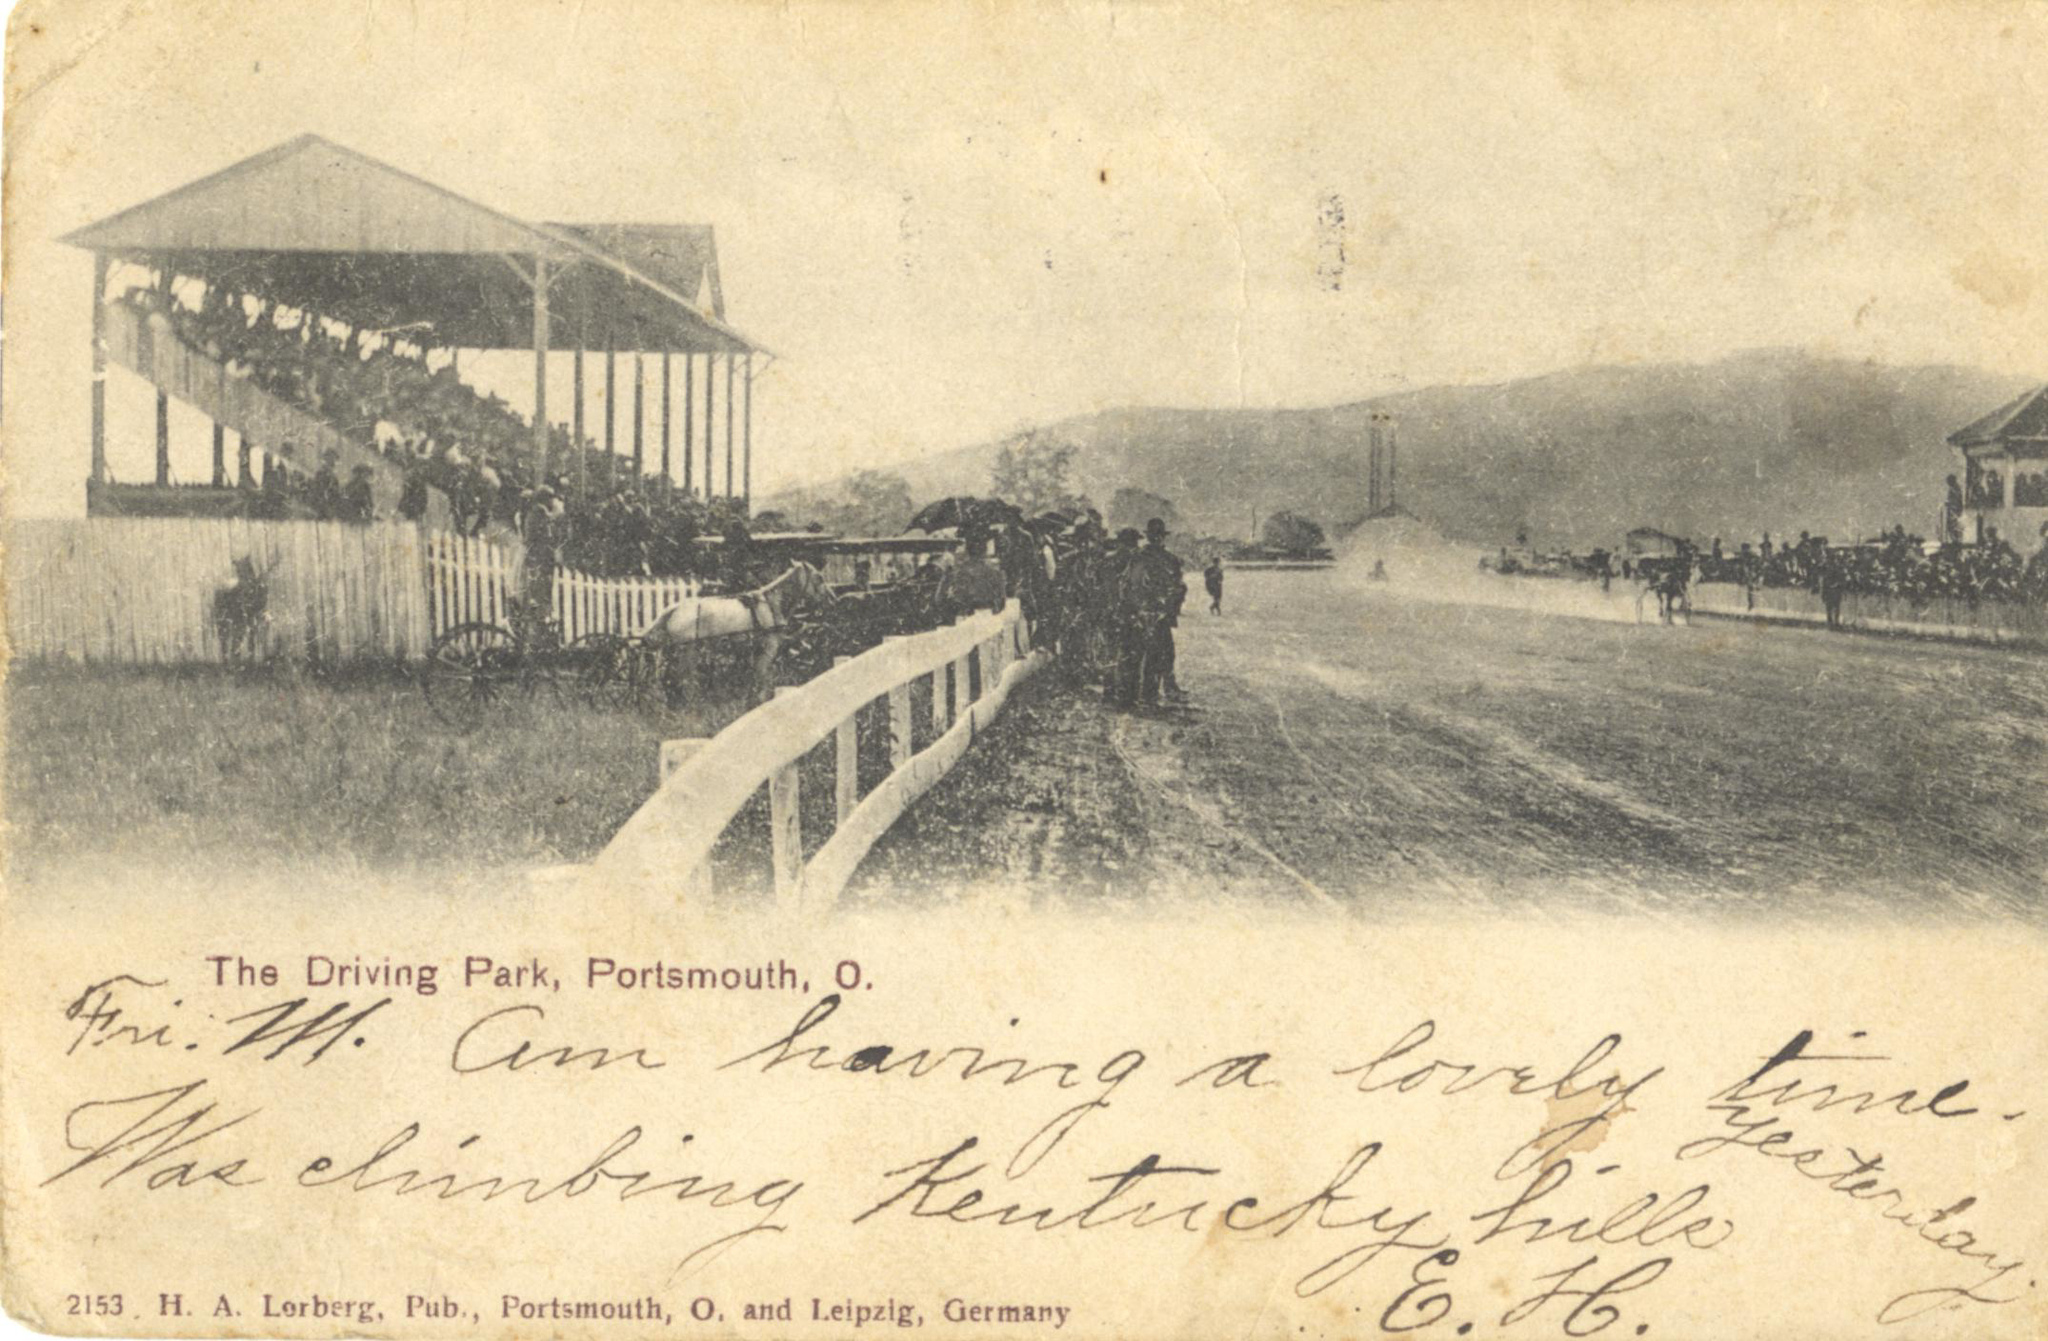 The Driving Park, Portsmouth, O.
Fri. M. Am having a lovely time.
Was climbing Kentucky hills yesterday.
E. H.
2153 H. A. Lorberg, Pub., Portsmouth, O. and Leipzig, Germany